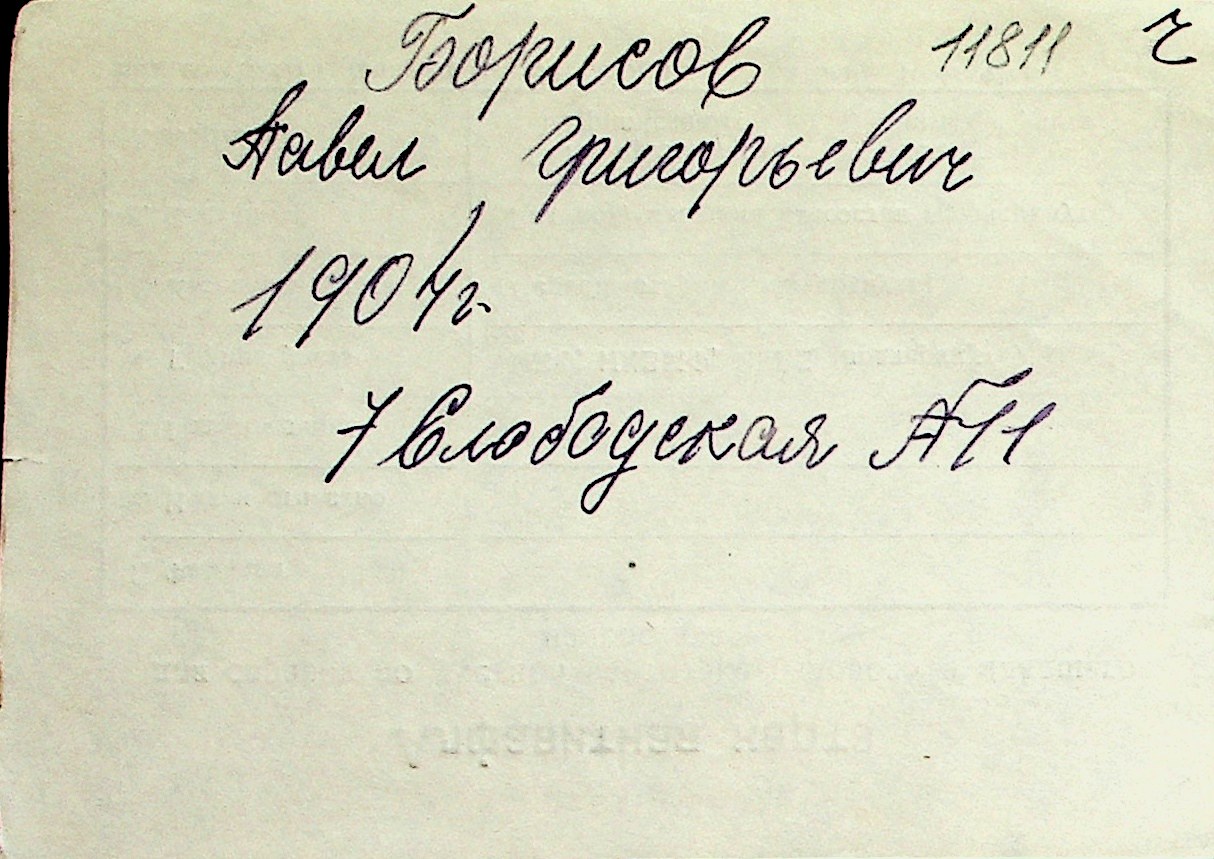 Борисов 11811 ч
Павел Григорьевич
1904г.
7 Слободская А11